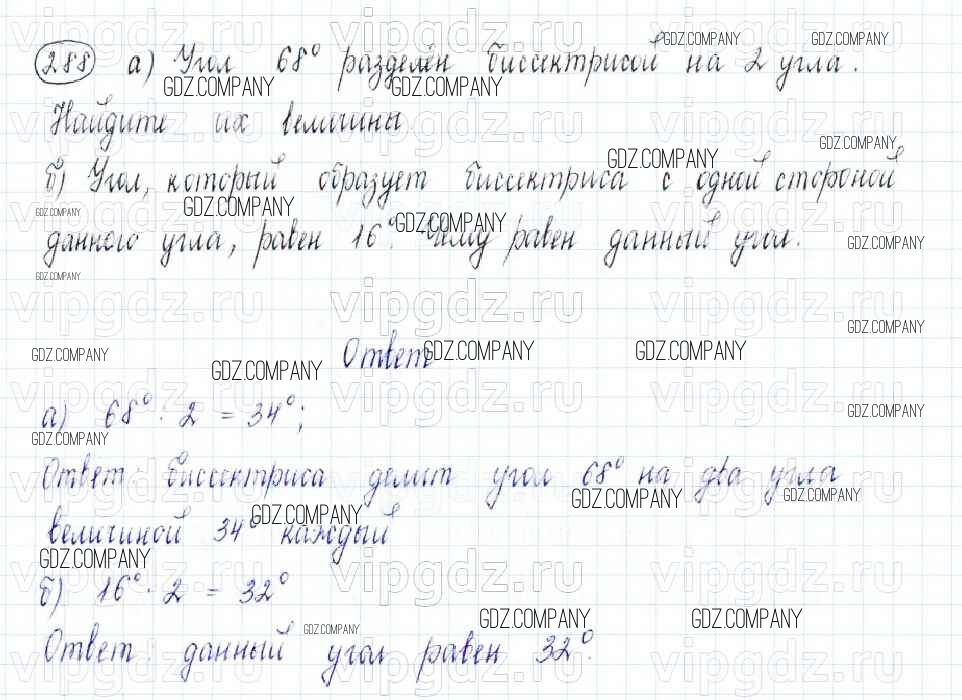 288 а) Угол 68° разделён биссектрисой на 2 угла.
Найдите их величины.
б) Угол, который образует биссектриса с одной стороной
данного угла, равен 16°. Чему равен данный угол.
Ответ
а) 68° : 2 = 34°;
Ответ: биссектриса делит угол 68° на два угла
величиной 34° каждый
б) 16° · 2 = 32°
Ответ: данный угол равен 32°.
vipgdz.ru
GDZ.COMPANY